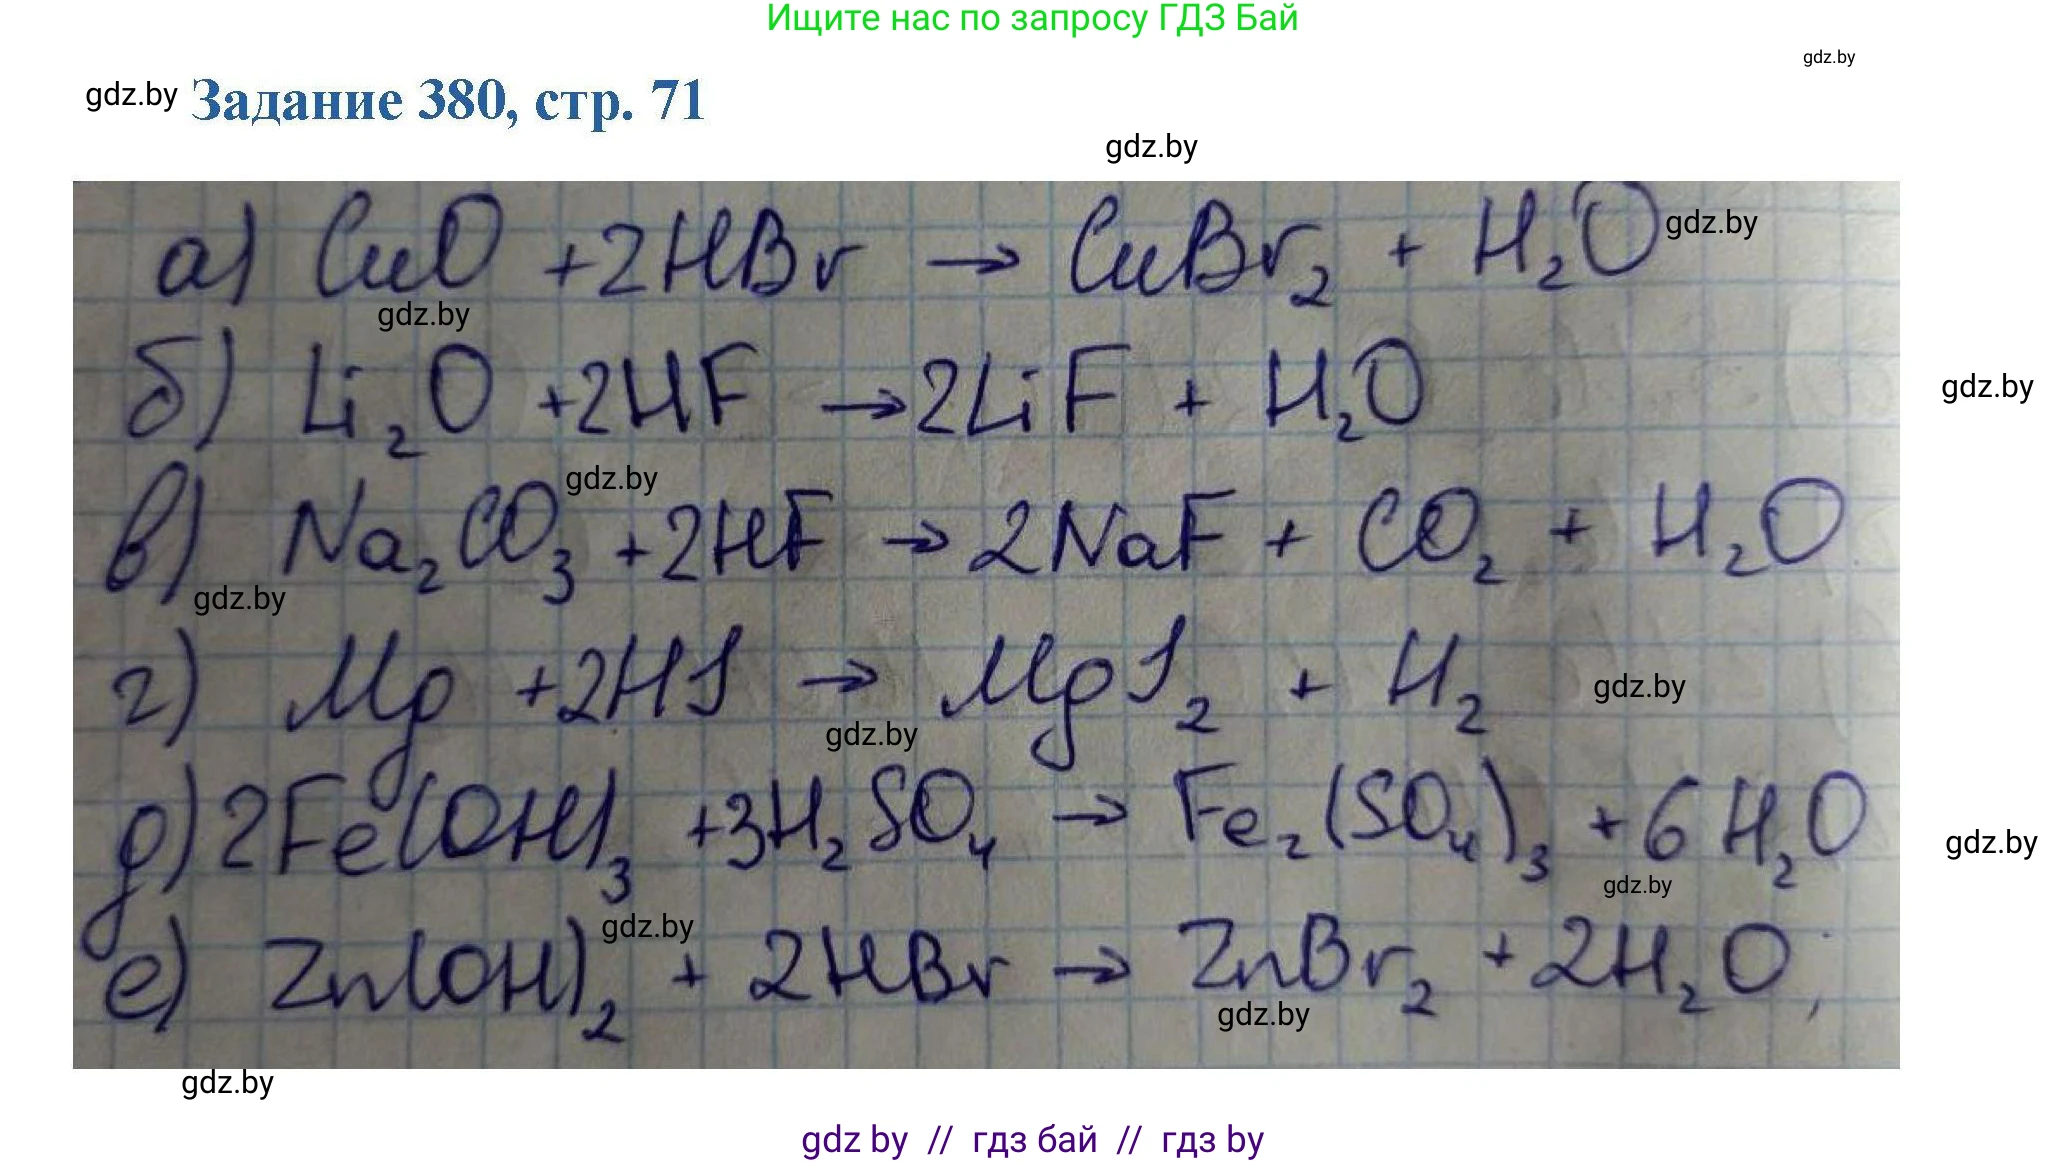 Ищите нас по запросу ГДЗ Бай
gdz.by
gdz.by Задание 380, стр. 71
gdz.by
а) CuO + 2HBr → CuBr₂ + H₂O gdz.by
gdz.by
б) Li₂O + 2HF → 2LiF + H₂O
gdz.by
gdz.by
в) Na₂CO₃ + 2HF → 2NaF + CO₂ + H₂O
gdz.by
г) Mg + 2HI → MgI₂ + H₂
gdz.by
gdz.by
д) 2Fe(OH)₃ + 3H₂SO₄ → Fe₂(SO₄)₃ + 6H₂O
gdz.by
gdz.by
gdz.by
е) Zn(OH)₂ + 2HBr → ZnBr₂ + 2H₂O;
gdz.by
gdz.by
gdz by // гдз бай // гдз by